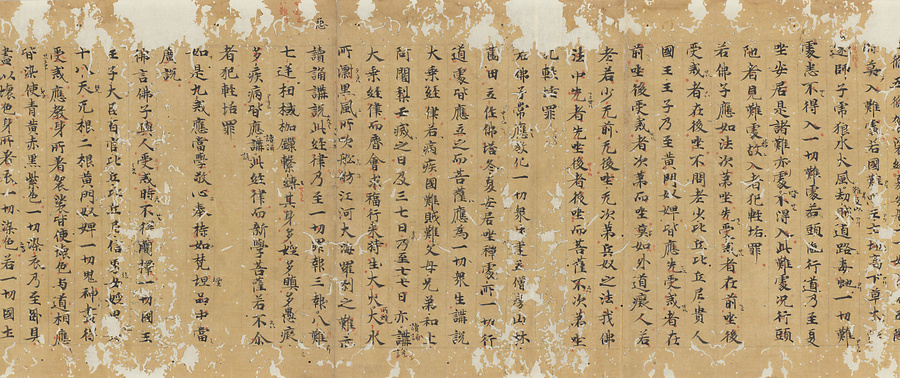 難處若國難
逐師子虎狼水火風劫賊道路毒蛇一切難
處悉不得入一切難處若頭陀行道乃至夏
坐安居是諸難處亦不得入此難處況行頭
陀者見難處故入者犯輕垢罪
若佛子應如法次第坐先受戒者在前坐後
受戒者在後坐不問老少比丘比丘尼貴人
國王王子乃至黃門奴婢皆應先受戒者在
前坐後受戒者次第而坐莫如外道癡人若
老若少无前无後坐无次第兵奴之法我佛
法中先者先坐後者後坐而菩薩不次第坐
犯輕垢罪
若佛子常應教化一切眾生建立僧房山林
薗田立作佛塔冬夏安居坐禪處所一切行
道處皆應立之而菩薩應為一切眾生講說
大乘經律若病疾國難賊難父母兄弟和上
阿闍梨亡滅之日及三七日乃至七七日亦講
大乘經律而齋會求福行來治生大火大水
所漂黑風所吹船舫江河大海羅剎之難亦
讀誦講說此經律乃至一切罪報三報八難
七逆杻械枷鏁繫縛其身多婬多瞋多愚癡
多疾病皆應講此經律而新學菩薩若不尒
者犯輕垢罪
如是九戒應當學敬心奉持如梵壇品中當
廣說
佛言佛子與人受戒時不得簡擇一切國王
王子大臣百官比丘比丘尼信男女婬
十八天无根二根黃門奴婢一切鬼神盡得
受戒應教身所著袈裟皆使壞色与道相應
皆染使青黃赤黑紫色一切染衣乃至臥具
盡以壞色身所著衣一切染色若一切國土